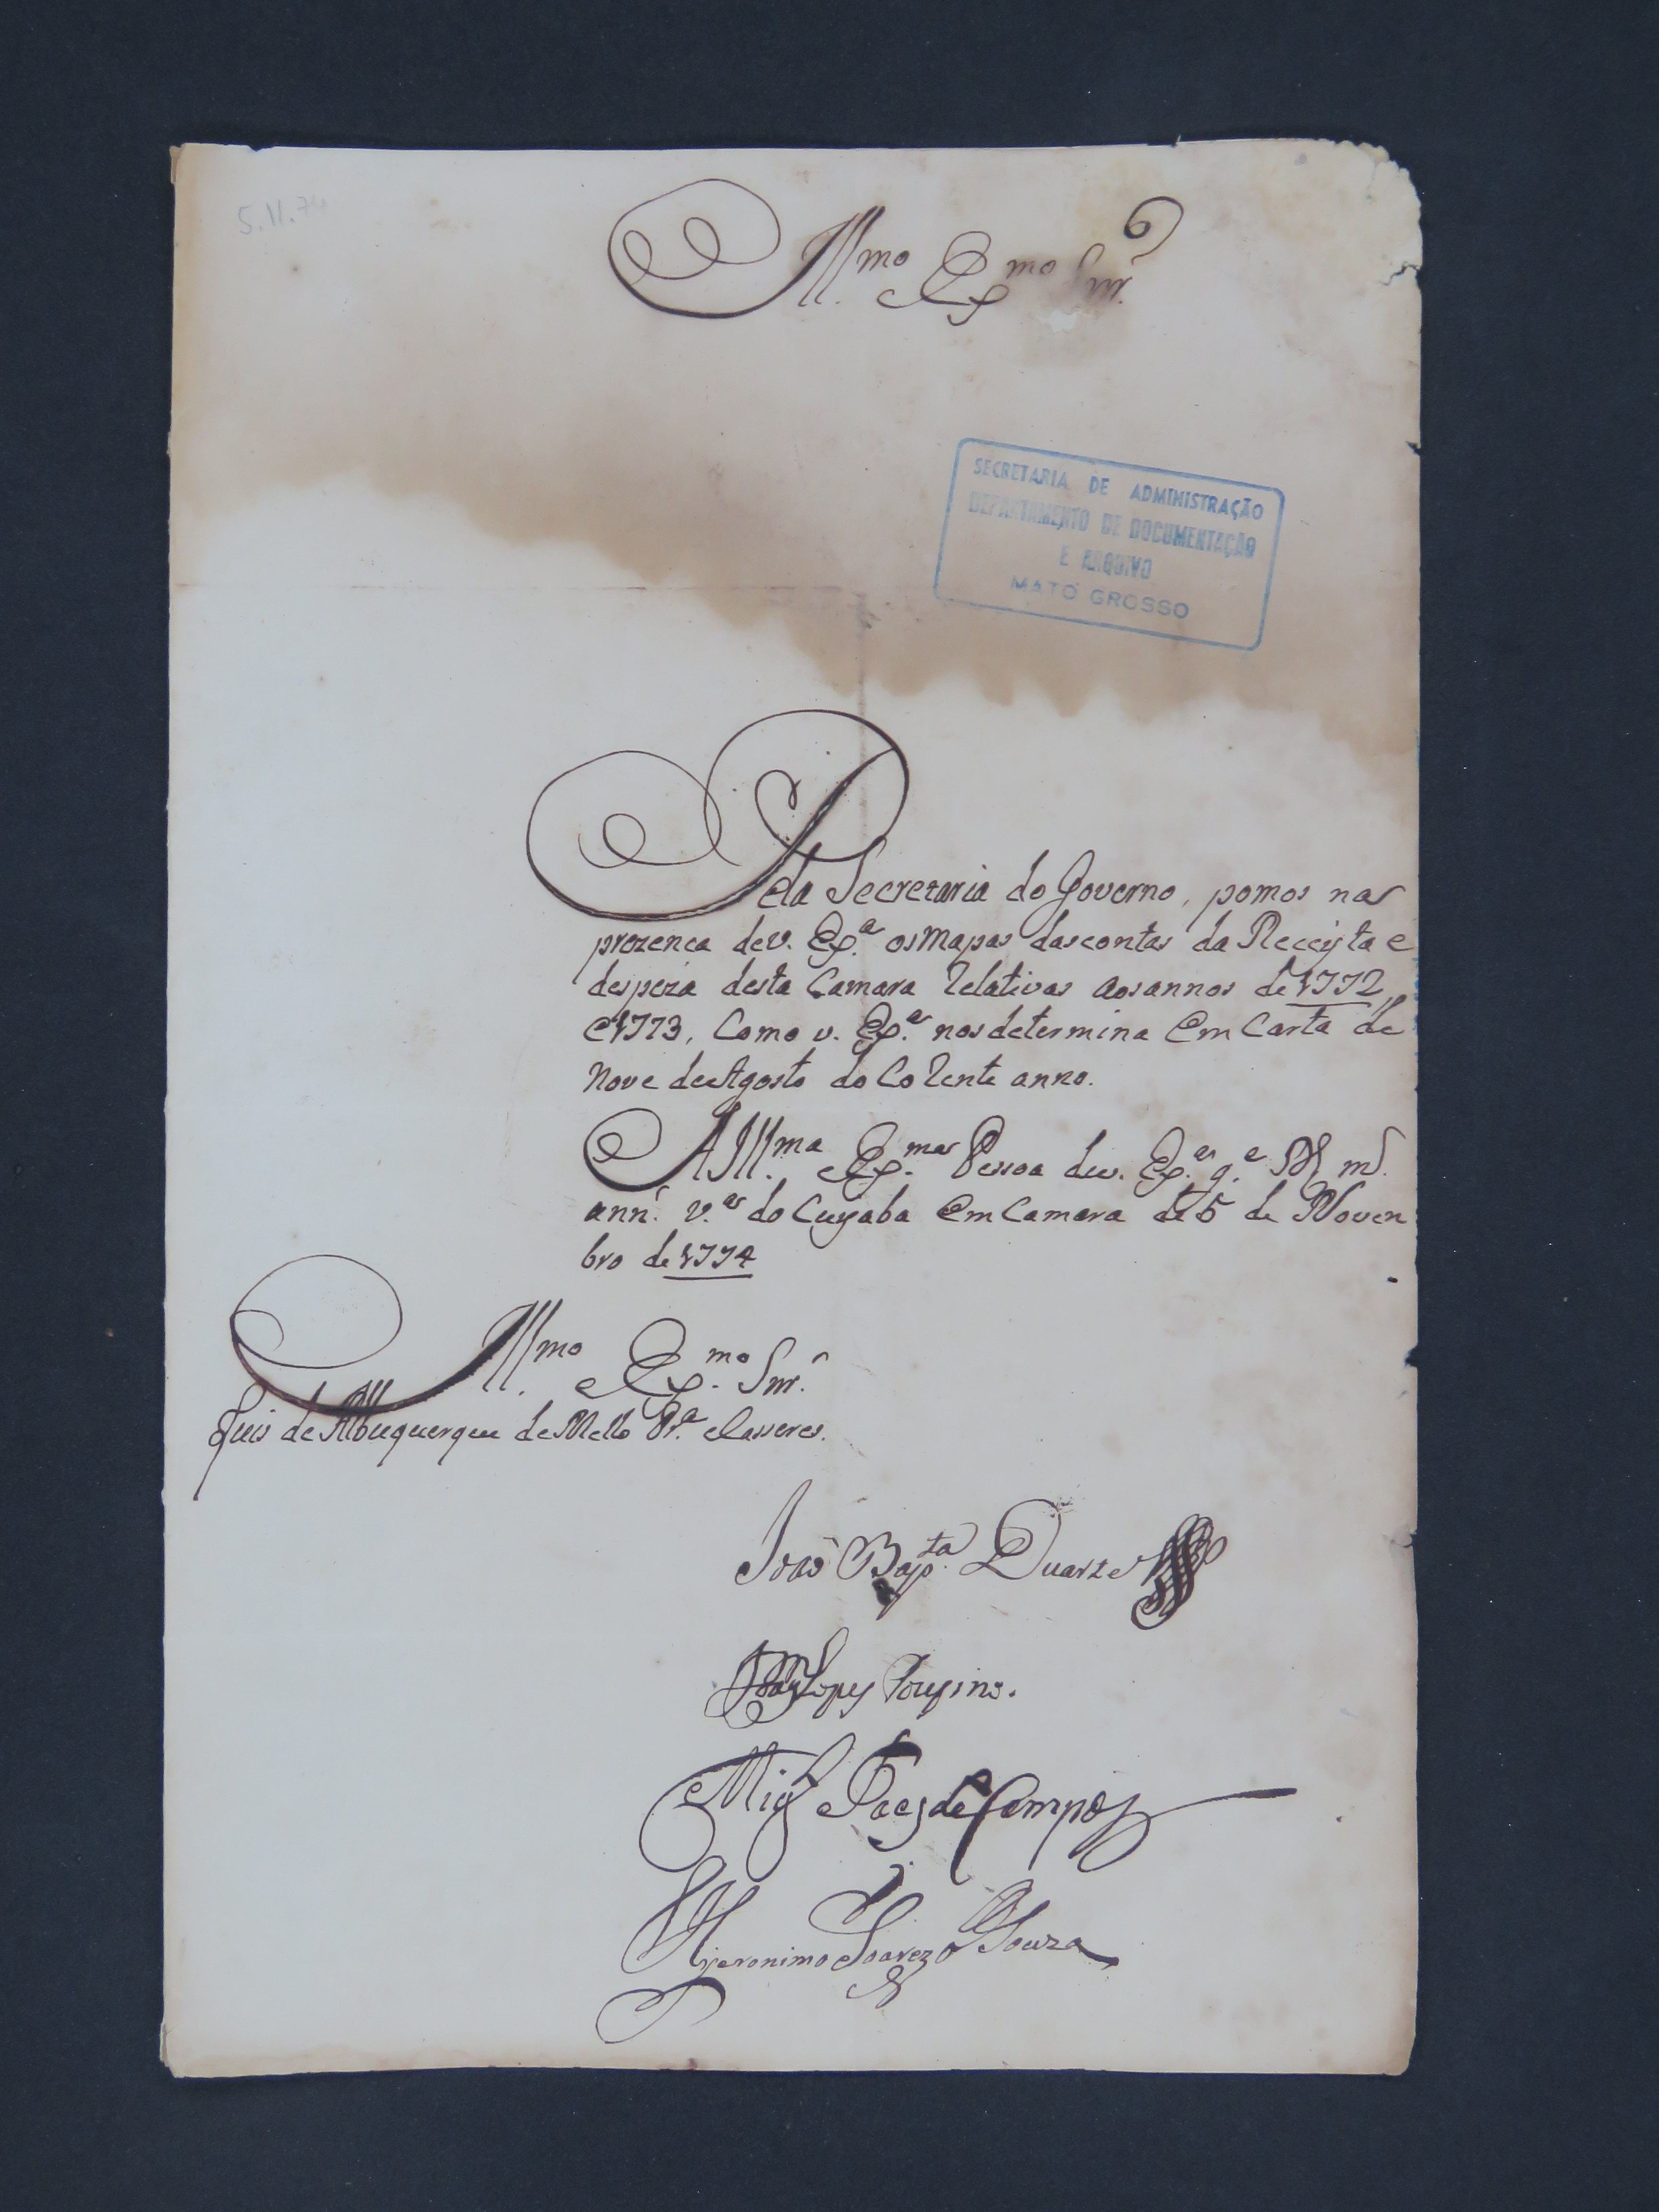 5.11.74
Ill.mo Ex.mo Snr.
SECRETARIA DE ADMINISTRAÇÃO
DEPARTAMENTO DE DOCUMENTAÇÃO
E ARQUIVO
MATO GROSSO
Pela Secretaria do Governo, pomos na
prezenca de V. Ex.a os Mapas das contas da Receyta e
despeza desta Camara Relativas aos annos de 1772,
e 1773, Como v. Ex.a nos determina Em Carta de
Nove de Agosto do CoRente anno.
A Ill.ma Ex.ma Pessoa de v. Ex.a g.e m.
ann. V.a do Cuyaba Em Camara de 5 de Noven
bro de 1774
Ill.mo Ex.mo Snr.
Luis de Albuquerque de Mello Pr.a e Casseres.
João Bap.ta Duarte
Lopes
Mig.l Paes de Campos
Hyeronimo Soarez Souza